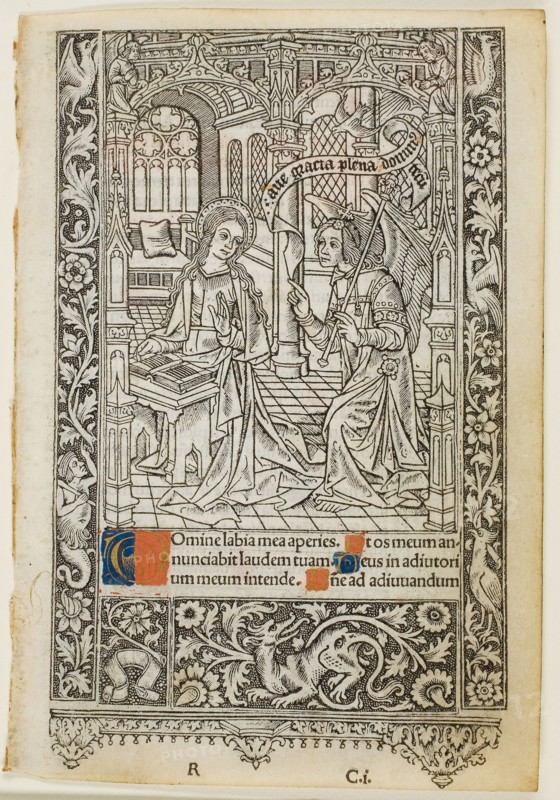 aue gracia plena domin tecu
Omine labia mea aperies. Et os meum an-
nunciabit laudem tuam. Deus in adiutori
um meum intende. Dñe ad adiuuandum
R
C.i.